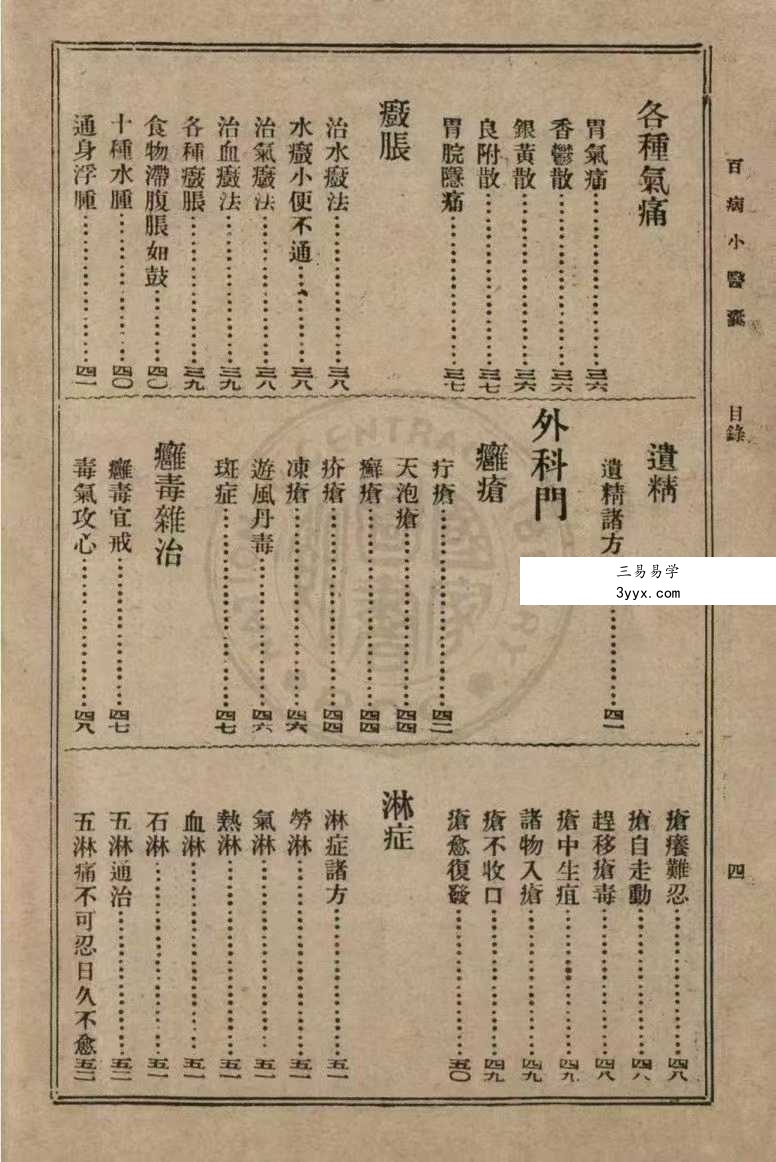 百病小醫囊　目錄　四
各種氣痛
胃氣痛…………三六
香鬱散…………三六
銀黃散…………三六
良附散…………三七
胃脘隱痛…………三七
癈脹
治水癈法…………三八
水癈小便不通…………三八
治氣癈法…………三八
治血癈法…………三九
各種癈脹…………三九
食物滯腹脹如鼓…………四〇
十種水腫…………四〇
通身浮腫…………四一
遺精
遺精諸方…………四一
外科門
癰瘡
疔瘡…………四二
天泡瘡…………四四
癬瘡…………四四
疥瘡…………四四
凍瘡…………四六
遊風丹毒…………四六
斑症…………四七
癰毒雜治
癰毒宜戒…………四七
毒氣攻心…………四八
瘡癢難忍…………四八
瘡自走動…………四八
趕移瘡毒…………四八
瘡中生疽…………四九
諸物入瘡…………四九
瘡不收口…………四九
瘡愈復發…………五〇
淋症
淋症諸方…………五一
勞淋…………五一
氣淋…………五一
熱淋…………五一
血淋…………五一
石淋…………五一
五淋通治…………五二
五淋痛不可忍日久不愈五二
三易易学
3yyx.com